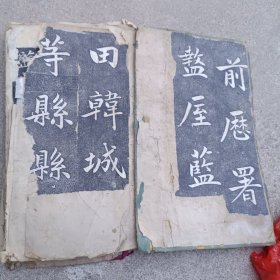 前歷署
盩厔藍
田韓城
等縣縣